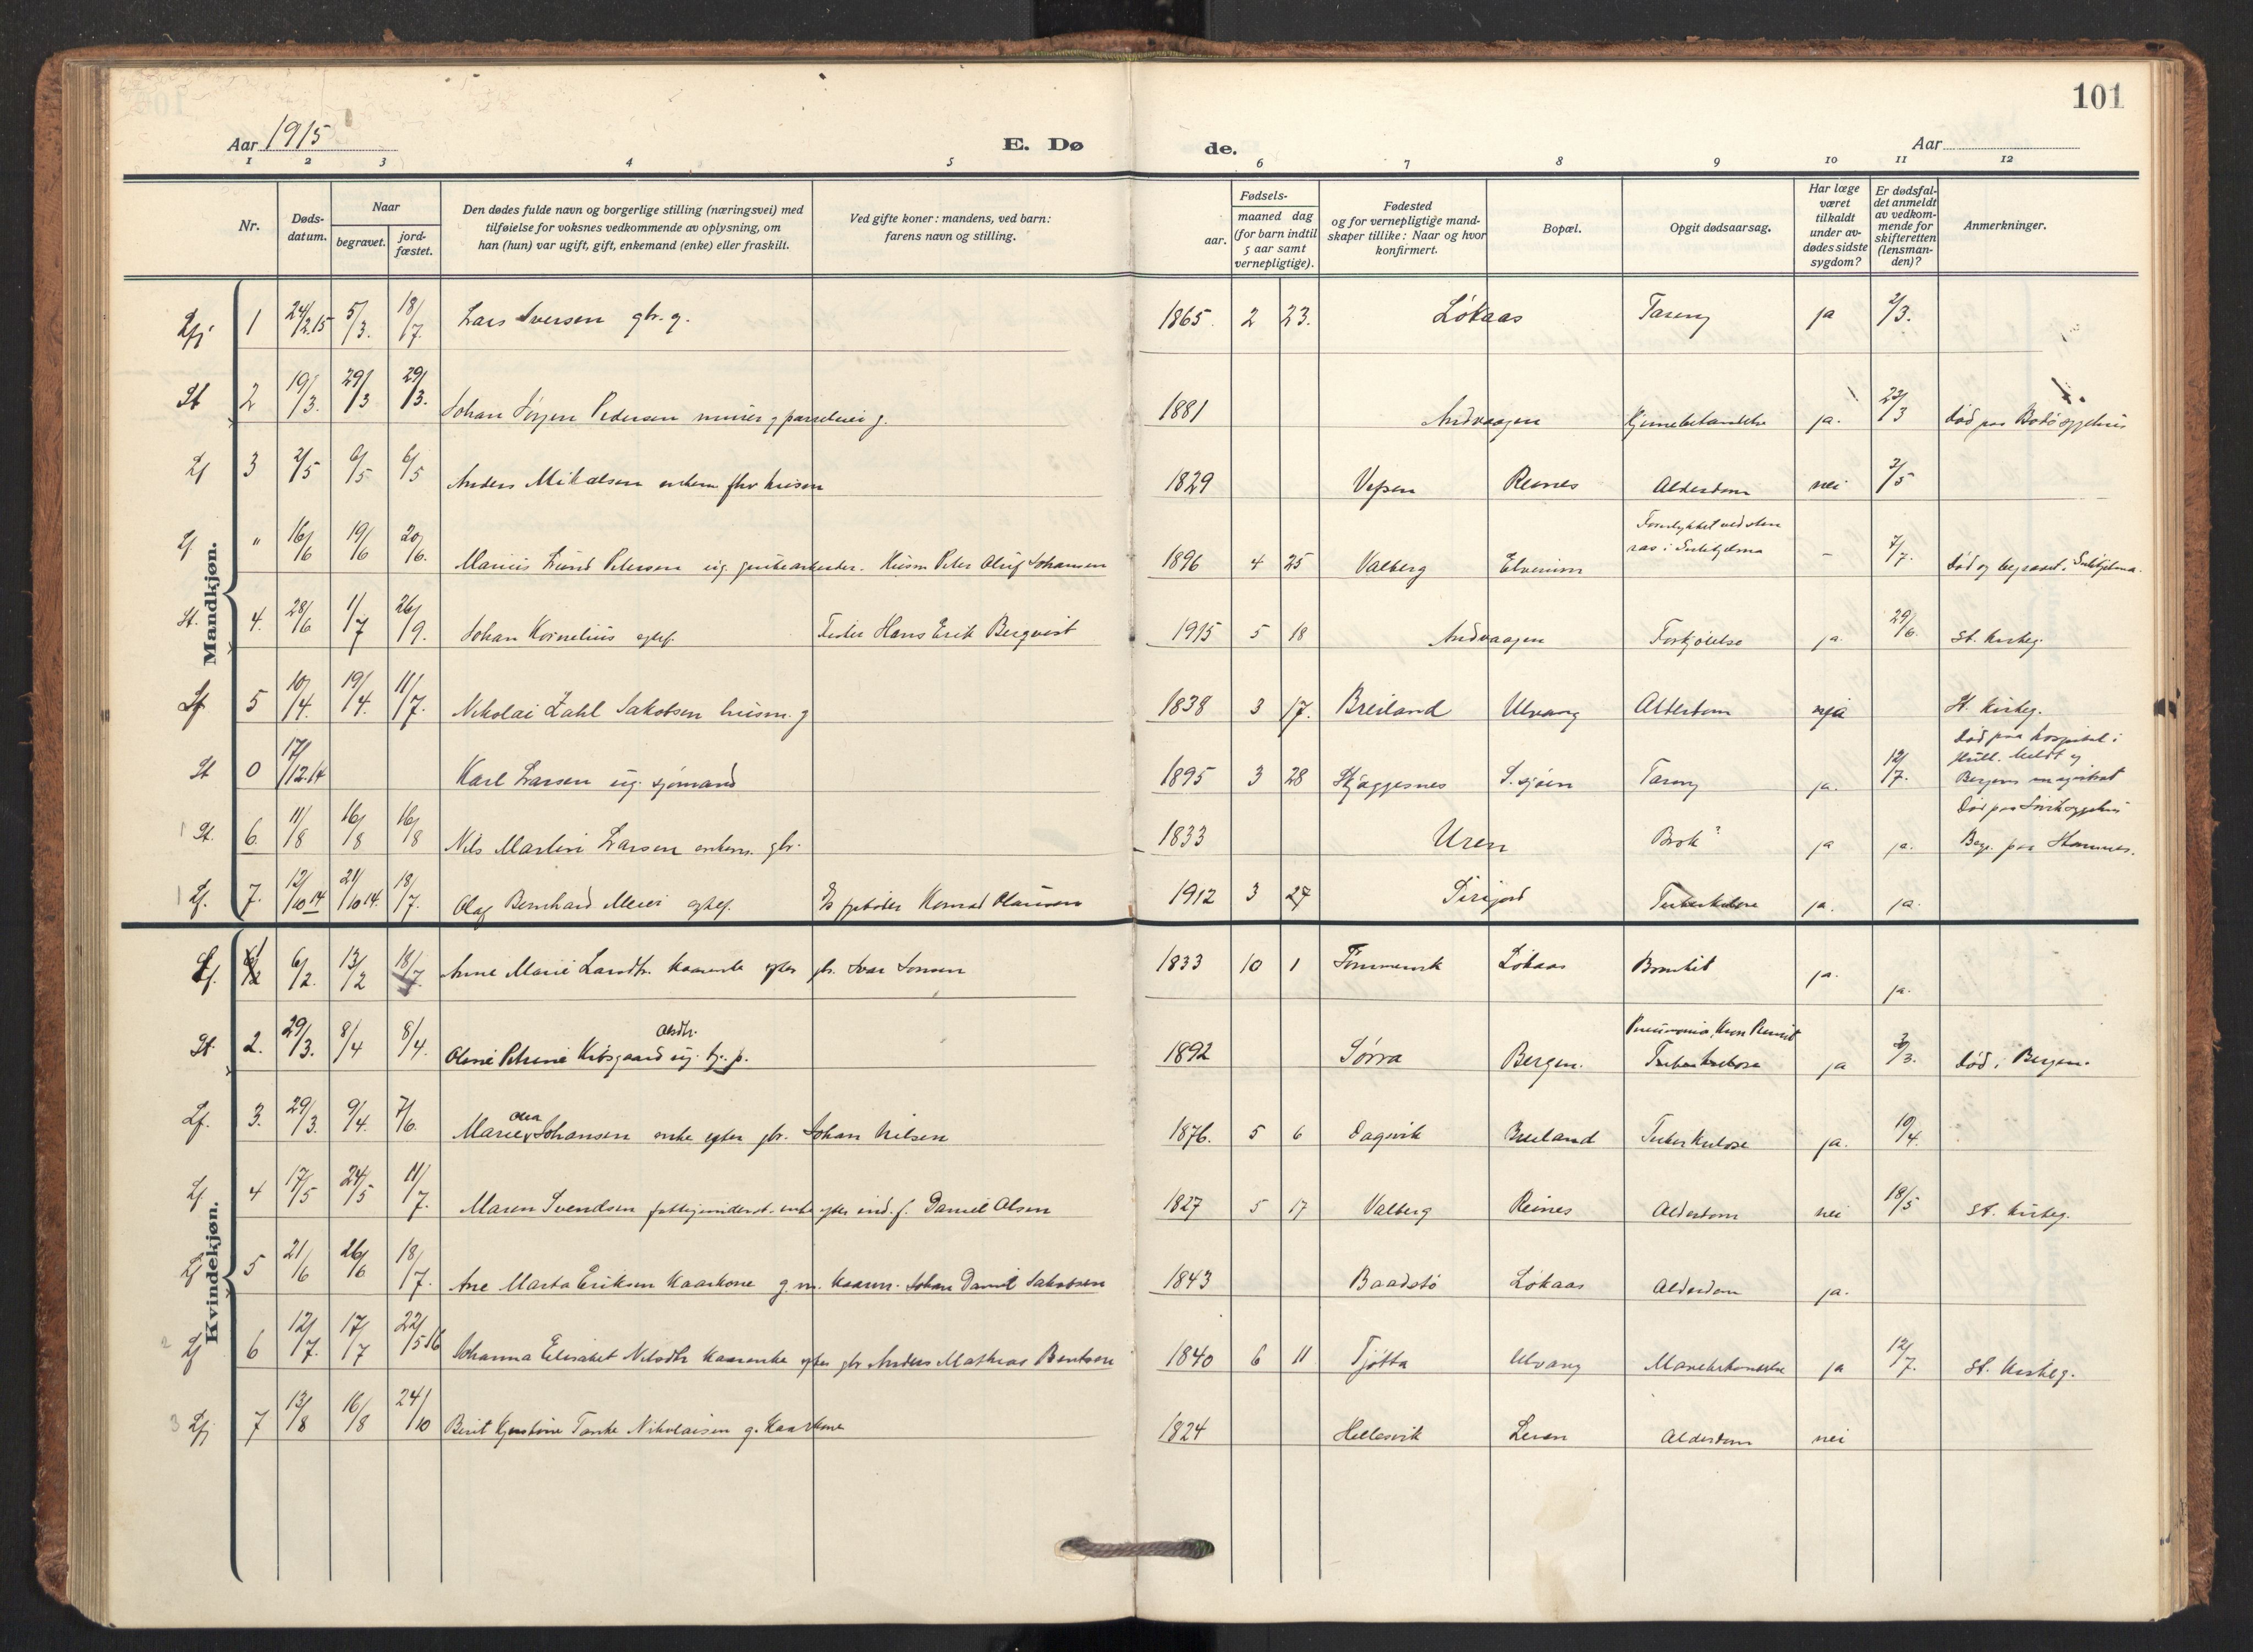 101
Aar 1915
E. Dø de.
Aar
1 2 3 4 5 6 7 8 9 10 11 12
Nr.
Døds-
datum.
Naar
begravet.
jord-
fæstet.
Den dødes fulde navn og borgerlige stilling (næringsvei) med
tilføielse for voksnes vedkommende av oplysning, om
han (hun) var ugift, gift, enkemand (enke) eller fraskilt.
Ved gifte koner: mandens, ved barn:
farens navn og stilling.
Fødsels-
aar.
maaned dag
(for barn indtil
5 aar samt
vernepligtige).
Fødested
og for vernepligtige mand-
skaper tillike: Naar og hvor
konfirmert.
Bopæl.
Opgit dødsaarsag.
Har læge
været
tilkaldt
under av-
dødes sidste
sygdom?
Er dødsfal-
det anmeldt
av vedkom-
mende for
skifteretten
(lensman-
den)?
Anmerkninger.
Mandkjøn.
1 24/2.15 5/3. 18/7. Lars Iversen gbr. g. 1865. 2 23. Løkaas Tæring ja 2/3.
St 2 19/3. 29/3 29/3. Johan Jørgen Pedersen murer g. 1881 Andvaagen ja. 23/3 død paa Bodø sygehus
Lf 3 2/5 6/5 6/5 Anders Mikalsen enkem. fhv. husm 1829 Vefsen Reines Alderdom nei 3/5
Lf " 16/6 19/6 20/6. Marius Lund Petersen ug. grubearbeider. Husm Peter Oluf Johansen 1896 4 25 Valberg Elvenim Forulykket ved sten
ras i Sulitjelma - 7/7. død og begravet i Sulitjelma.
St. 4. 28/6 1/7 26/9. Johan Kornelius Fisker Hans Erik Bergqvist 1915 5 18 Andvaagen Forkjølelse ja. 29/6. St. kirkeg.
Lf 5 10/4. 19/4. 11/7. Nikolai Zahl Jakobsen husm. g 1838 3 17. Breiland Ulvang Alderdom St. kirkeg.
St 0 17/12.14 Karl Larsen ug. sjømand 1895 3 28 Skjæggesnes S. sjøen Tæring ja. 12/7. død paa hospital i
Hull. meldt
Bergens magistrat
St. 6. 11/8 16/8 16/8 Nils Martin Larsen enkem. gbr. 1833 Uren Brok? ja ja. Død paa sygehus
Begr. paa Hammer.
Lf. 7. 12/10 14 21/10 14. 18/7. Olaf Bernhard Meier Konrad Olaussen 1912 3 27 Sirijord Tuberkulose ja. ja.
Kvindekjøn.
Lf. 1 6/2. 13/2 18/7. Anne Marie Larsdtr. kaarenke efter gbr. Ivar Jonsen 1833 10 1 Tømmervik Løkaas Bronkit ja. ja.
St. 2. 29/3. 8/4 8/4. Oline Petrine Olsdtr. Kibsgaard ug. tj. p. 1892 Sørra Bergen. Pneumonia, Kron
Tuberkulose ja 3/3. død i Bergen.
Lf. 3. 29/3. 9/4. 7/6. Marie Olea Johansen enke efter gbr. Johan Nilsen 1876. 5 6 Dagsvik Breiland Tuberkulose ja. 10/4.
Lf 4 17/5 24/5 11/7. Maren Svendsen fattigunderst. enke efter ind. f. Daniel Olsen 1827 5 17 Valberg Reines Alderdom nei 18/5 St. kirkeg.
Lf 5 21/6 26/6 18/7. Ane Marta Eriksen kaarkone g. m. kaarm. Johan Daniel Jakobsen 1843 Baadstø Løkaas Alderdom ja.
Lf 6 12/7. 17/7 22/5 16 Johanna Elisabet Nilsdtr kaarenke efter gbr Anders Mathias Bentsen 1840 6 11 Tjøtta Ulvang Mavebetændelse ja 12/7. St. kirkeg.
3 Lf 7 13/8 16/8 24/10 Berit Kjerstine Tanke Nikolaisen g. kaarkone 1824 Hellesvik Leren Alderdom nei